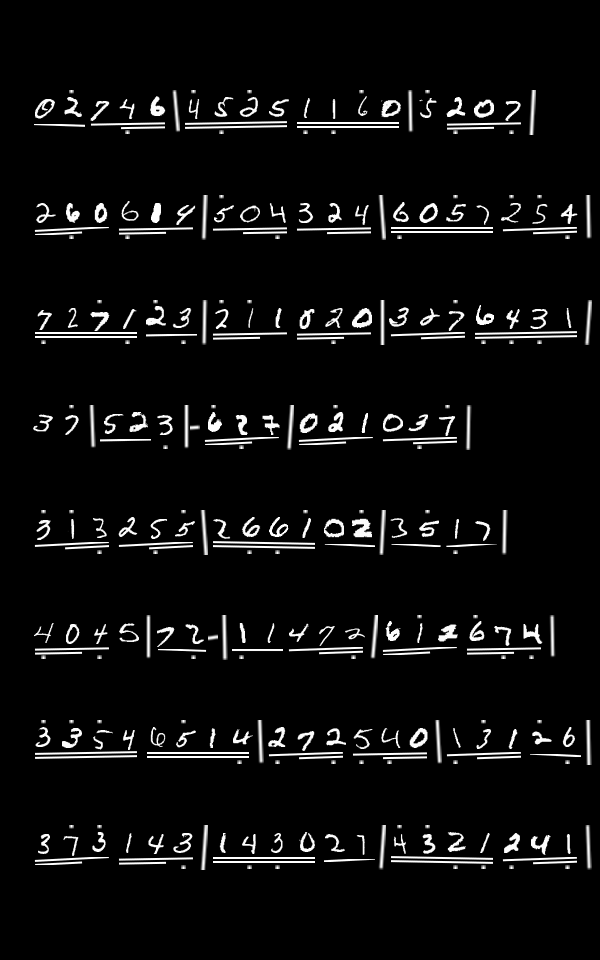 02746|45251160|5207
260614|504324|6057254
727123|211020|3276431
37|523|-627|021037
313255|266102|3517
4045|72-|11472|612674
33546514|272540|13126
373143|143027|4321241